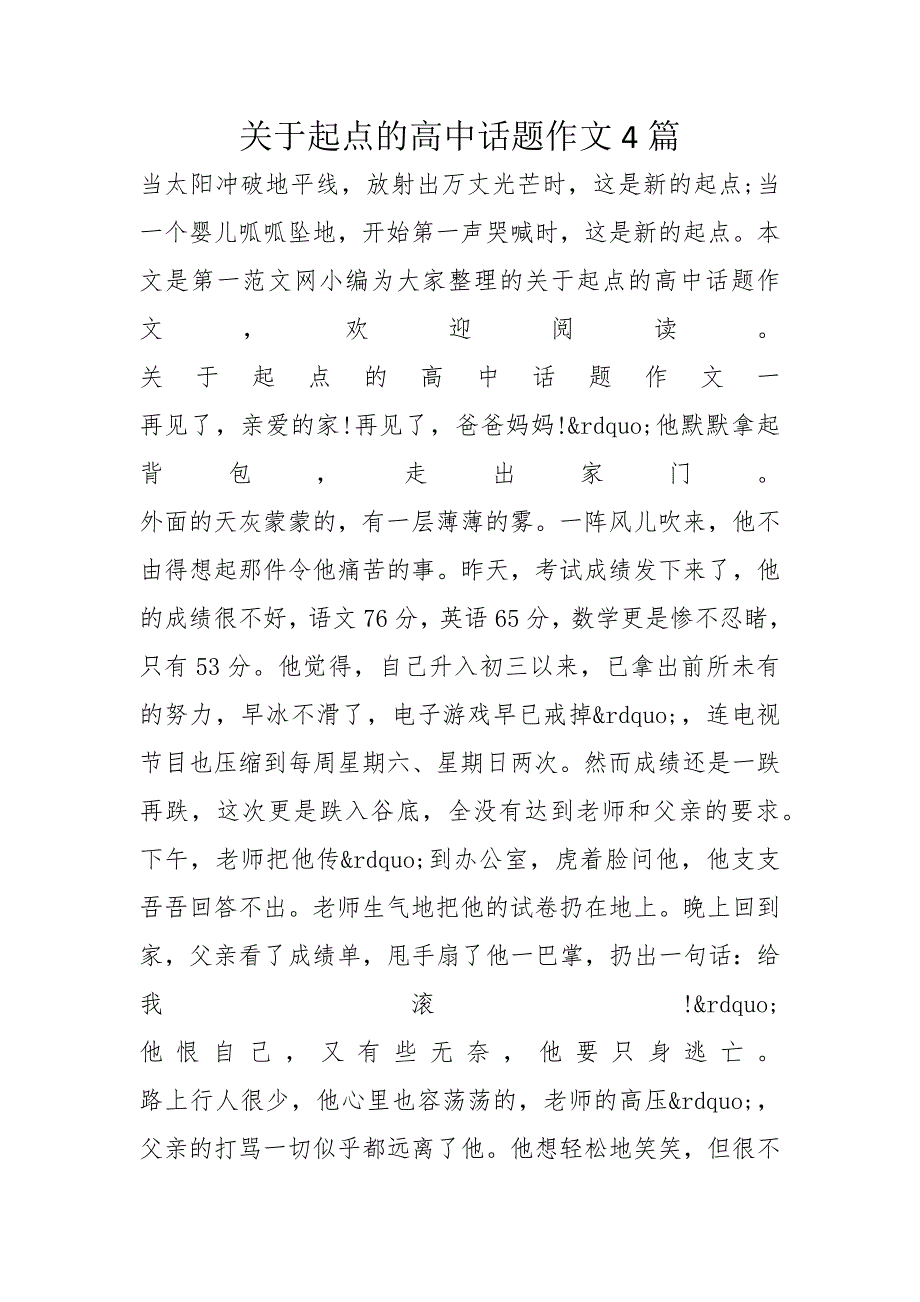 关于起点的高中话题作文 4 篇
当太阳冲破地平线，放射出万丈光芒时，这是新的起点;当
一个婴儿呱呱坠地，开始第一声哭喊时，这是新的起点。本
文是第一范文网小编为大家整理的关于起点的高中话题作
文，欢迎阅读。
关于起点的高中话题作文一
再见了，亲爱的家!再见了，爸爸妈妈!&rdquo;他默默拿起
背包，走出家门。
外面的天灰蒙蒙的，有一层薄薄的雾。一阵风儿吹来，他不
由得想起那件令他痛苦的事。昨天，考试成绩发下来了，他
的成绩很不好，语文 76 分，英语 65 分，数学更是惨不忍睹，
只有 53 分。他觉得，自己升入初三以来，已拿出前所未有
的努力，旱冰不滑了，电子游戏早已戒掉&rdquo;，连电视
节目也压缩到每周星期六、星期日两次。然而成绩还是一跌
再跌，这次更是跌入谷底，全没有达到老师和父亲的要求。
下午，老师把他传&rdquo;到办公室，虎着脸问他，他支支
吾吾回答不出。老师生气地把他的试卷扔在地上。晚上回到
家，父亲看了成绩单，甩手扇了他一巴掌，扔出一句话：给
我滚!&rdquo;
他恨自己，又有些无奈，他要只身逃亡。
路上行人很少，他心里也容荡荡的，老师的高压&rdquo;，
父亲的打骂一切似乎都远离了他。他想轻松地笑笑，但很不